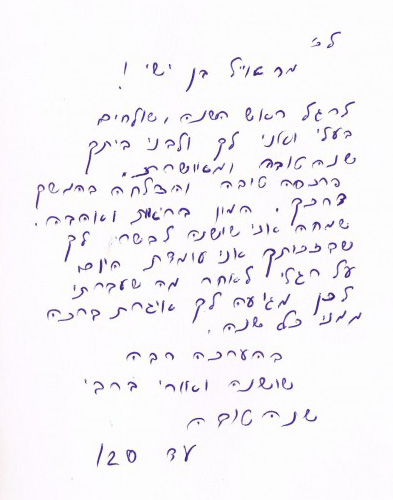 לכ'
מר אוייל בן ישי !
לרגל ראש השנה, שולחים
בעלי ואני לך ולבני ביתך
שנה טובה ומאושרת.
פרנסה טובה והצלחה בהמשך
דרכך. המון בריאות ואהבה.
שמחה אני שושנה לבשר לך
שבזכותך אני עומדת היום
על רגלי לאחר מה שעברתי
לכן מגיעה לך איגרת ברכה
ממני כל שנה.
בהערכה רבה
שושנה ואורי ברבי
שנה טובה
עד 120